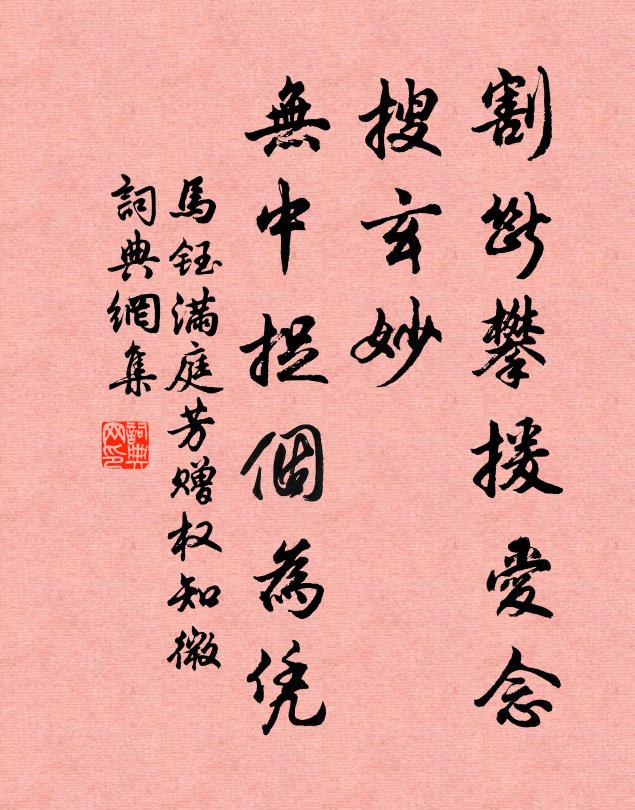 割斷攀援愛念
搜玄妙
無中捉個為凭
馬鈺滿庭芳贈权知微
詞典網集
詞典网印